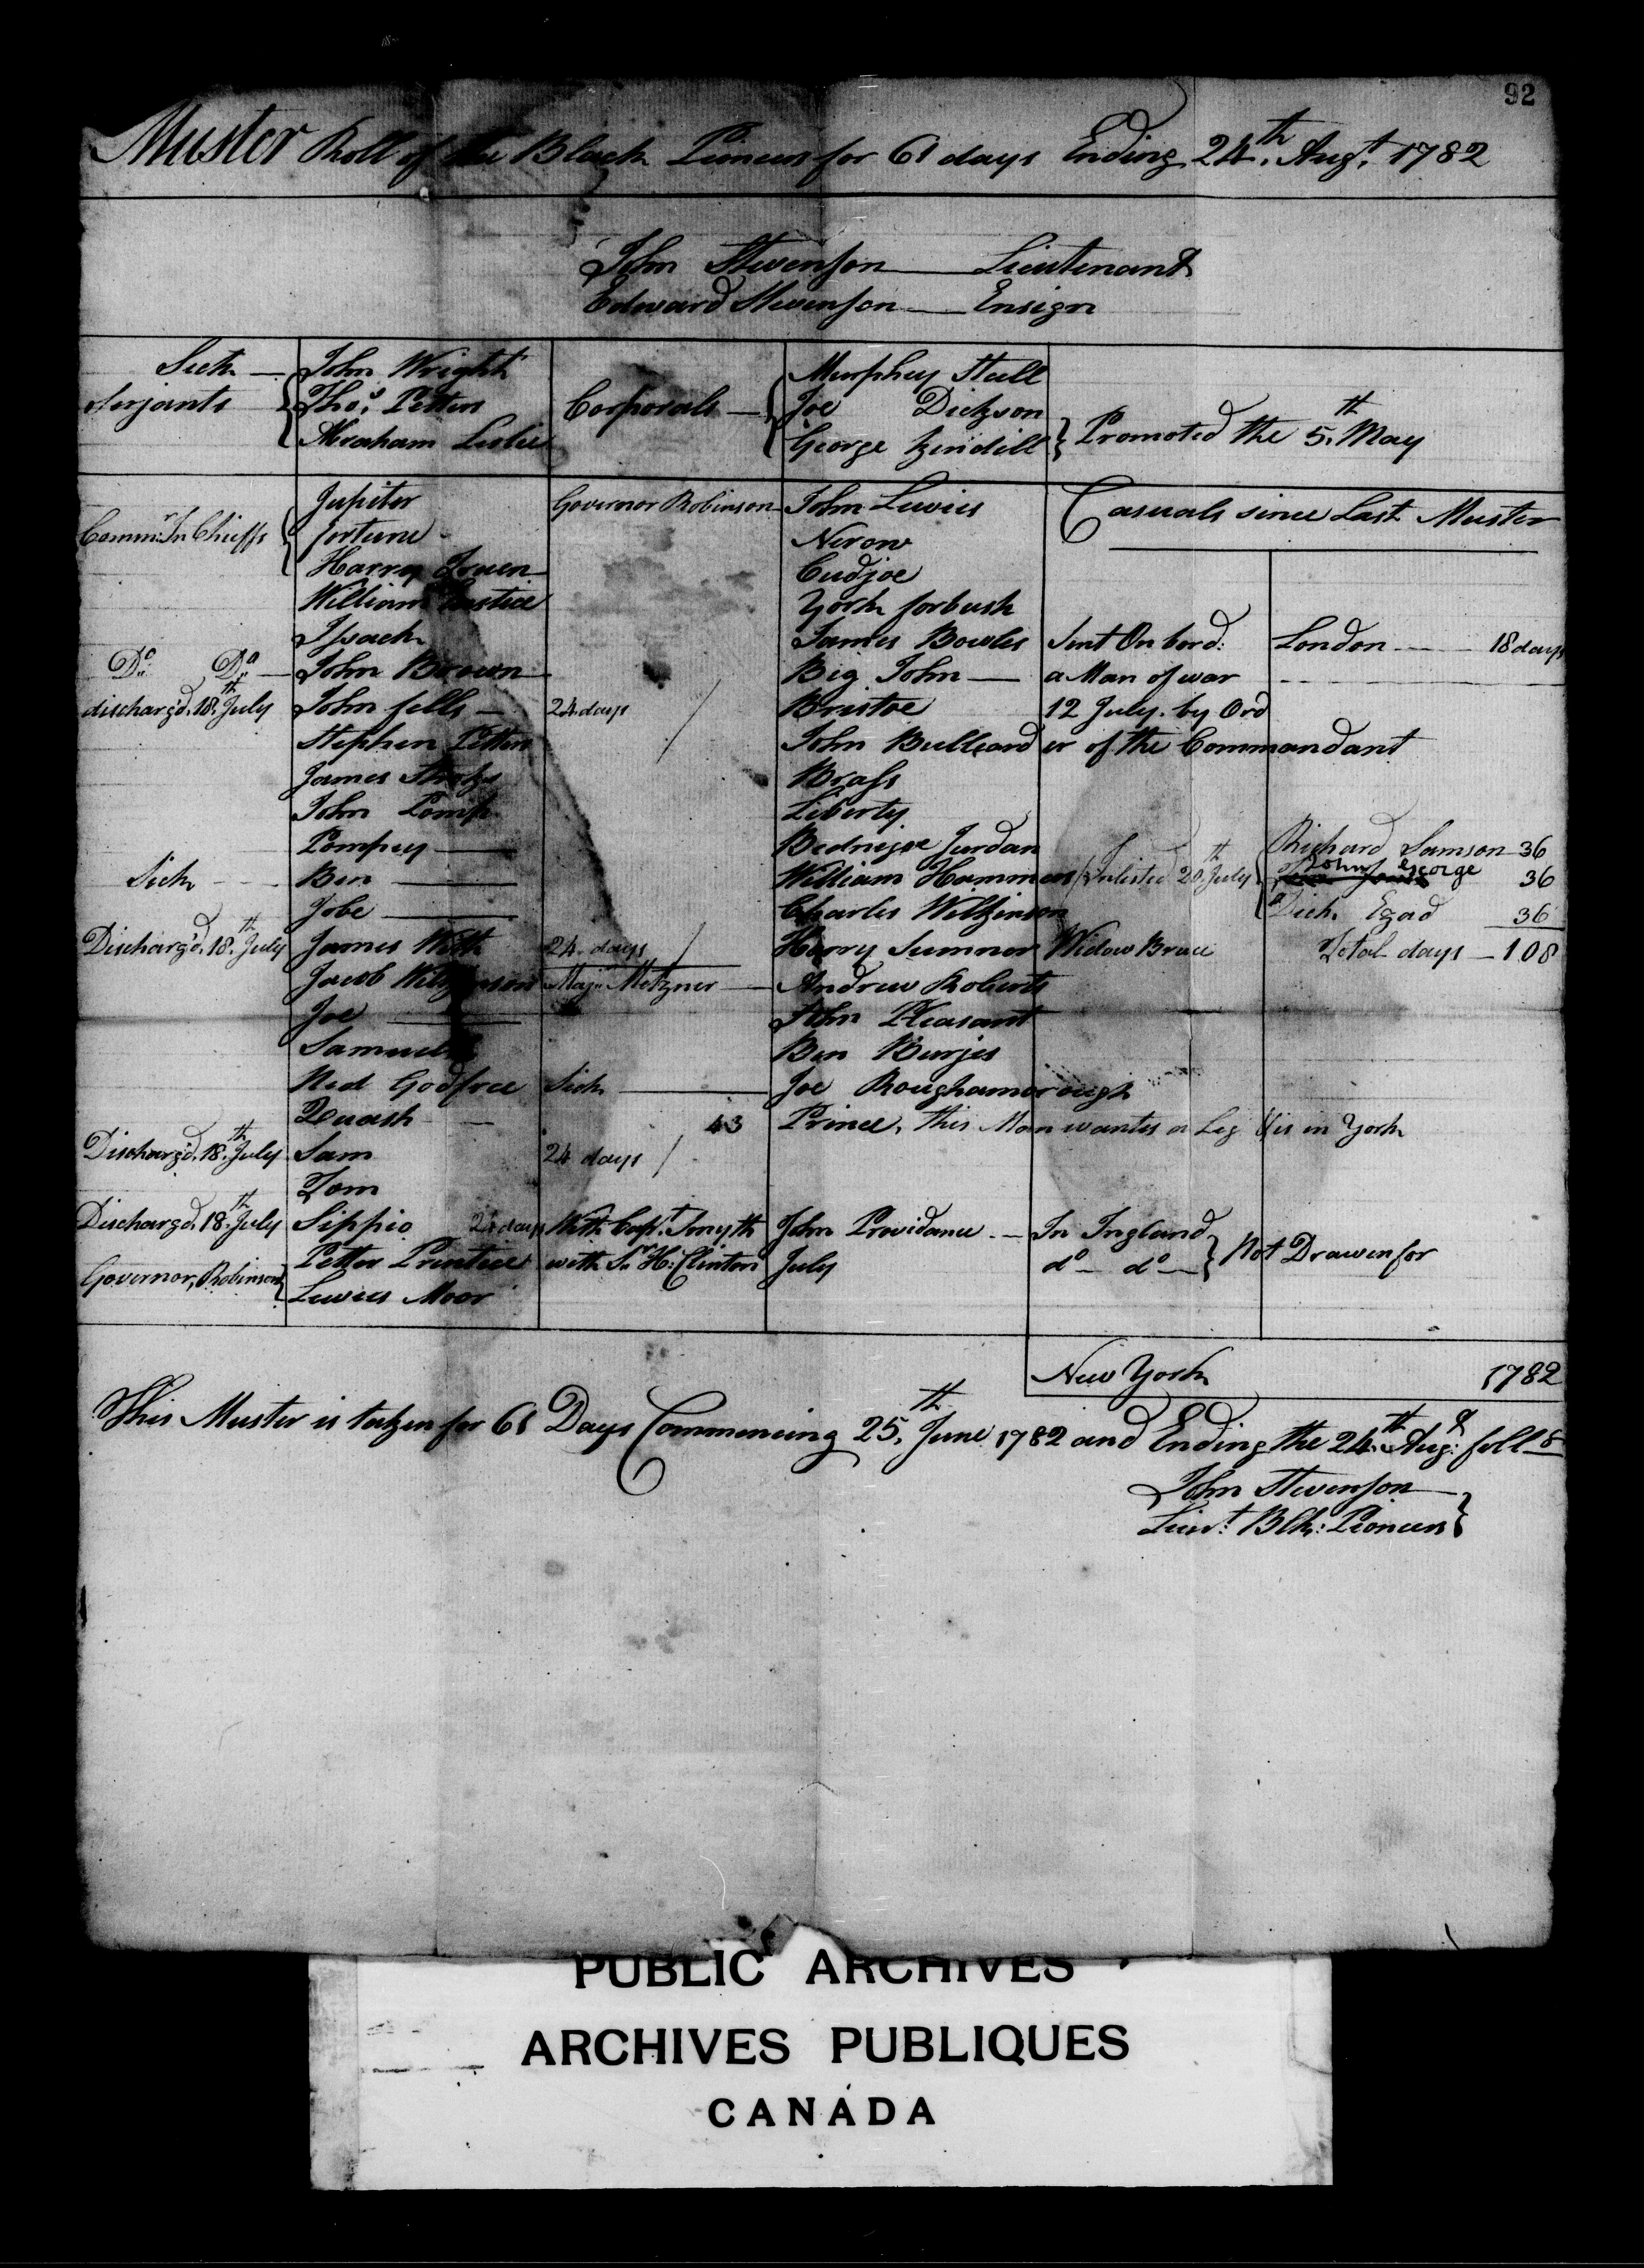 92
Muster Roll of the Black Pioneers for 61 days Ending 24th. Augt. 1782
John Stevenson Lieutenant
Edward Stevenson Ensign
Sick John Wright Murphey Stull
Serjants Thos. Petters Corporals Joe Dickson
Abraham Leslie George Kindill Promoted the 5th. May
Jupiter Governor Robinson John Lewies Casuals since Last Muster
Commr. In Chieffs fortune Nerow
Harry Cudjoe
William York forbush
Issack James Bowles Sent On bord: London 18 days
Do. Do. John Brown Big John a Man of war
dischargd. 18th. July John fells 24 days Bristoe 12 July. by Ord
Stephen Petters John Bulleard er of the Commandant
James Brass
John Pomp Liberty
Pompey Jurdan Richard Samson 36
Sick Ben William Hammons Inlisted 20th July John George 36
Jobe Charles Wilkinson Dick Egad 36
Dischargd. 18th. July James With 24 days Harry Sumner Widow Bruce Total days 108
Jacob Wilkinson Majr. Metzner Andrew Roberts
Joe John Pleasant
Samuel Ben Burjes
Ned Godfree Sick Joe Roughamorough
Quash 43 Prince, this Man wants a Leg His in York
Dischargd. 18th. July Sam 24 days
Tom
Dischargd. 18th. July Sippio 24 days With Capt. Smyth John Providance In Ingland
Petter Prentice with Sr. H: Clinton July do do Not Drawen for
Governor, Robinson Lewies Moor
New York 1782
This Muster is taken for 61 Days Commencing 25th. June 1782 and Ending the 24th. Augt foll
John Stevenson
Lieut: Blk: Pioneers
PUBLIC ARCHIVES
ARCHIVES PUBLIQUES
CANADA